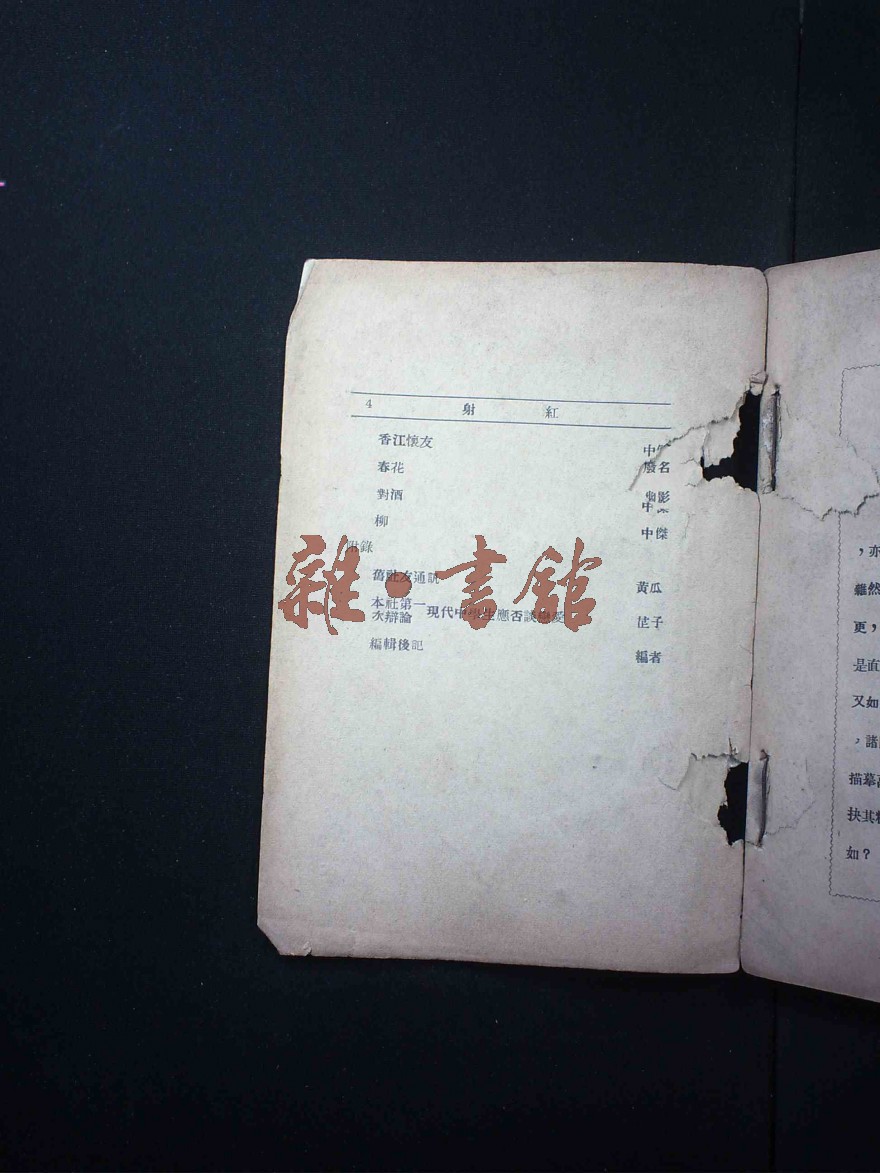 4 射 紅
香江懷友 中
春花 廢名
對酒 幽影
中傑
柳 中傑
附錄
舊社友通訊 黃瓜
本社第一次辯論 現代中學生應否談戀愛 芷子
編輯後記 編者
雜·書館
，亦
雖然
更，
是直
又如
，諸
描摹
抉其
如？